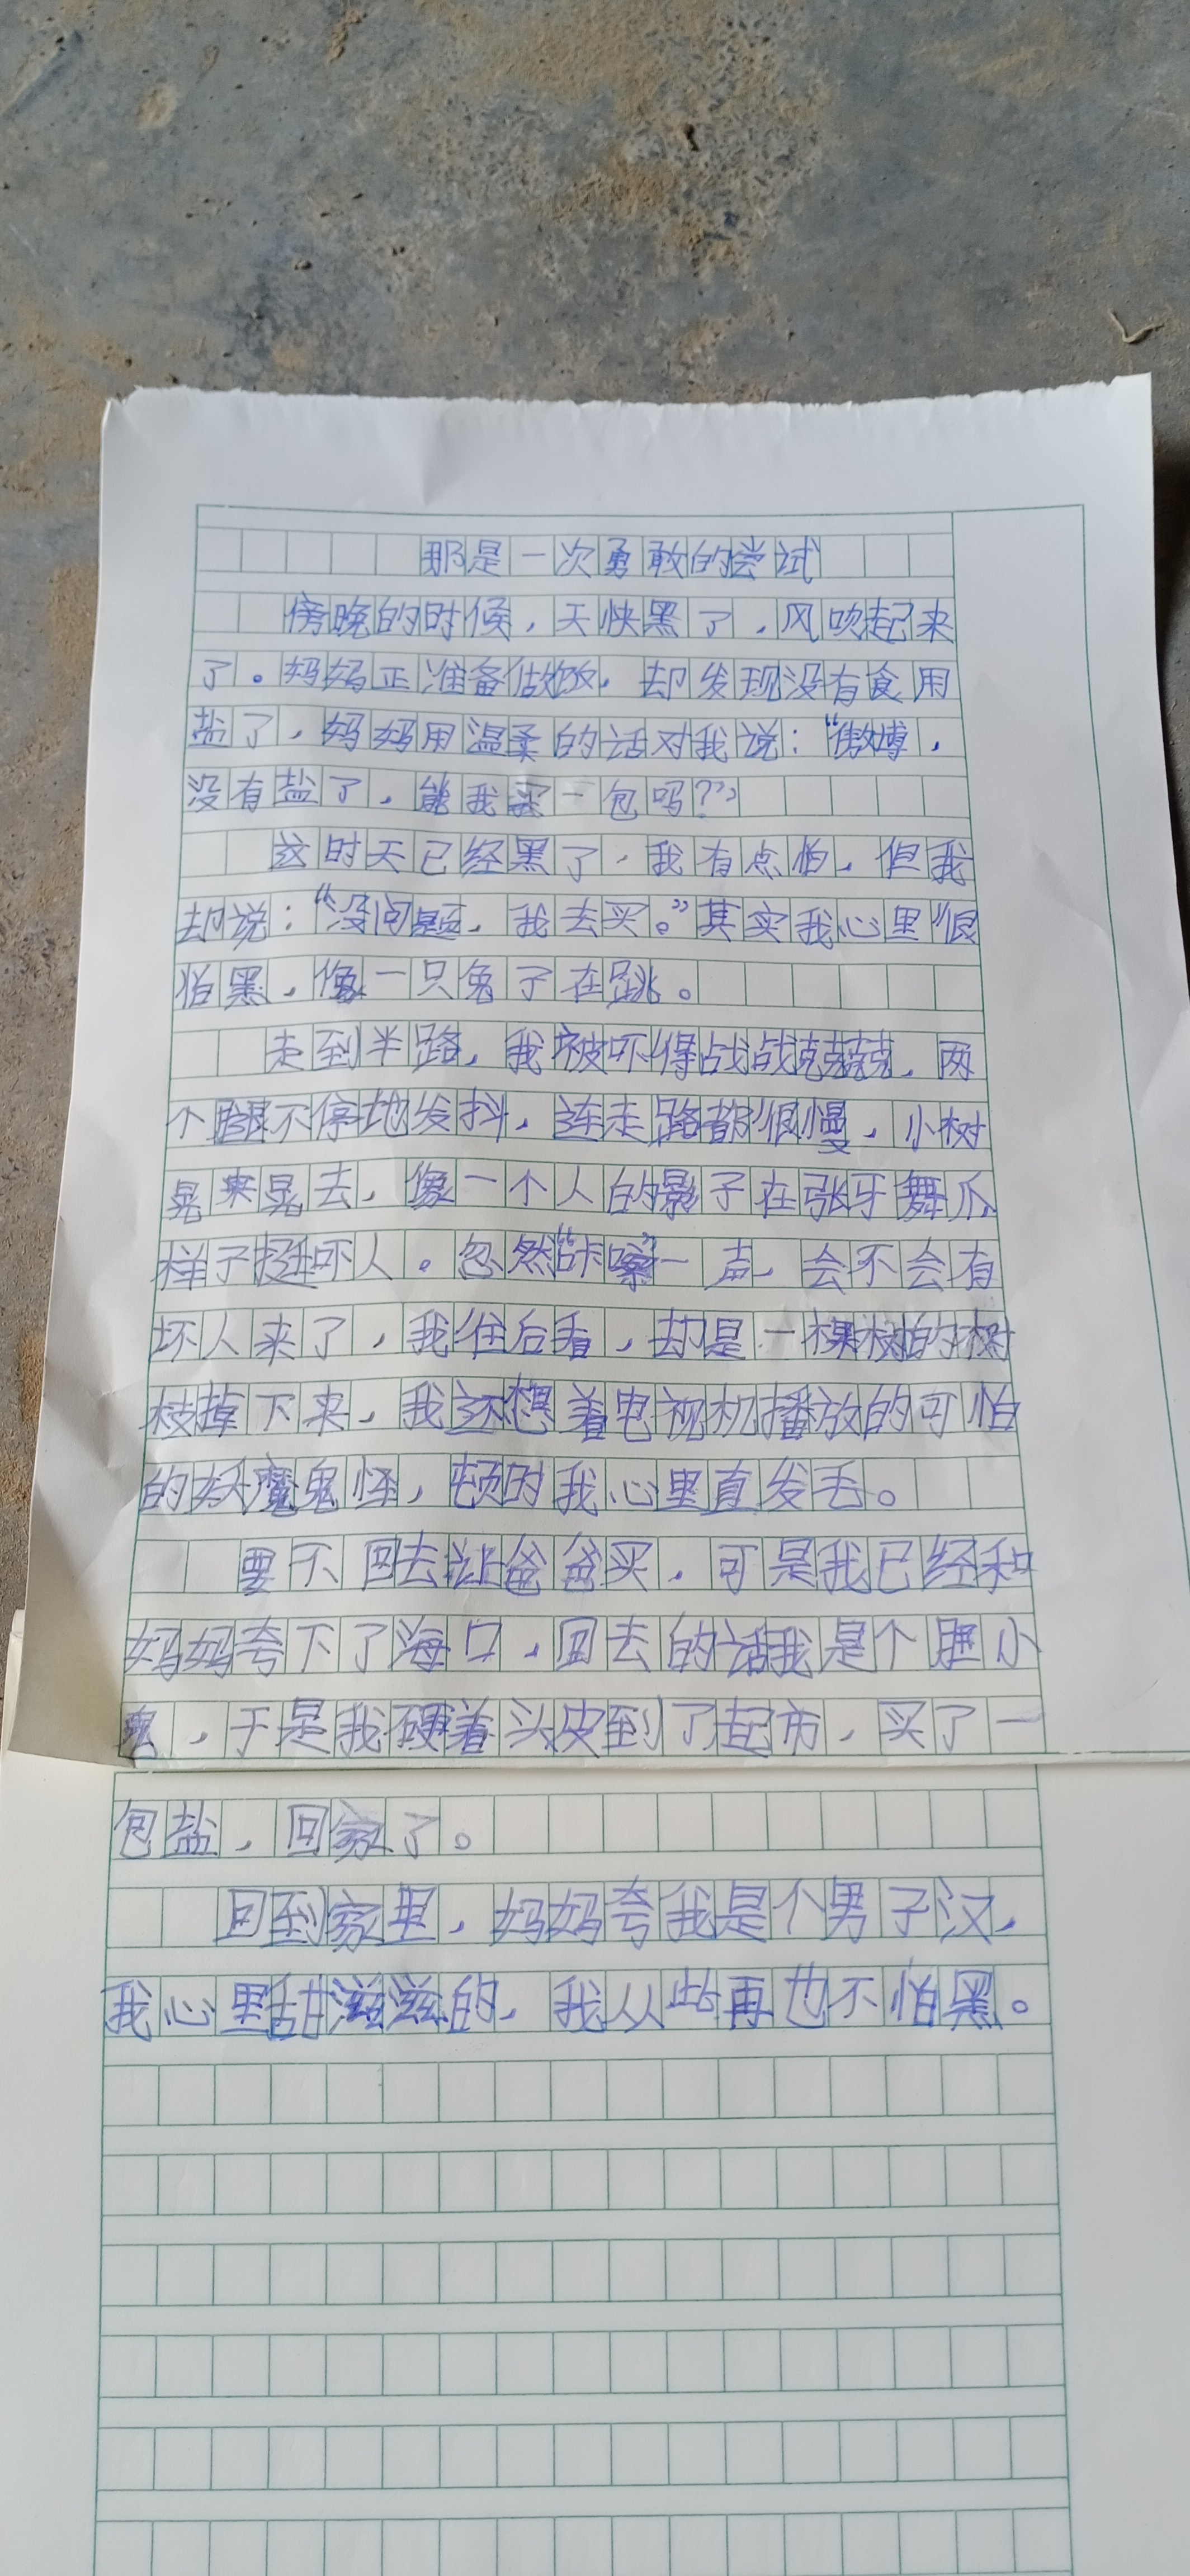 那是一次勇敢的尝试
傍晚的时候，天快黑了，风吹起来
了。妈妈正准备做饭，却发现没有食用
盐了，妈妈用温柔的话对我说：“傲博，
没有盐了，能我买一包吗？”
这时天已经黑了，我有点怕，但我
却说：“没问题，我去买。”其实我心里很
怕黑，像一只兔子在跳。
走到半路，我被吓得战战兢兢，两
个腿不停地发抖，连走路都很慢，小树
晃来晃去，像一个人的影子在张牙舞爪，
样子挺吓人。忽然“咔嚓”一声，会不会有
坏人来了，我往后看，却是一棵树的树
枝掉下来，我还想着电视机播放的可怕
的妖魔鬼怪，顿时我心里直发毛。
要不回去让爸爸买，可是我已经和
妈妈夸下了海口，回去的话我是个胆小
鬼，于是我硬着头皮到了起市，买了一
包盐，回家了。
回到家里，妈妈夸我是个男子汉，
我心里甜滋滋的，我从此再也不怕黑。